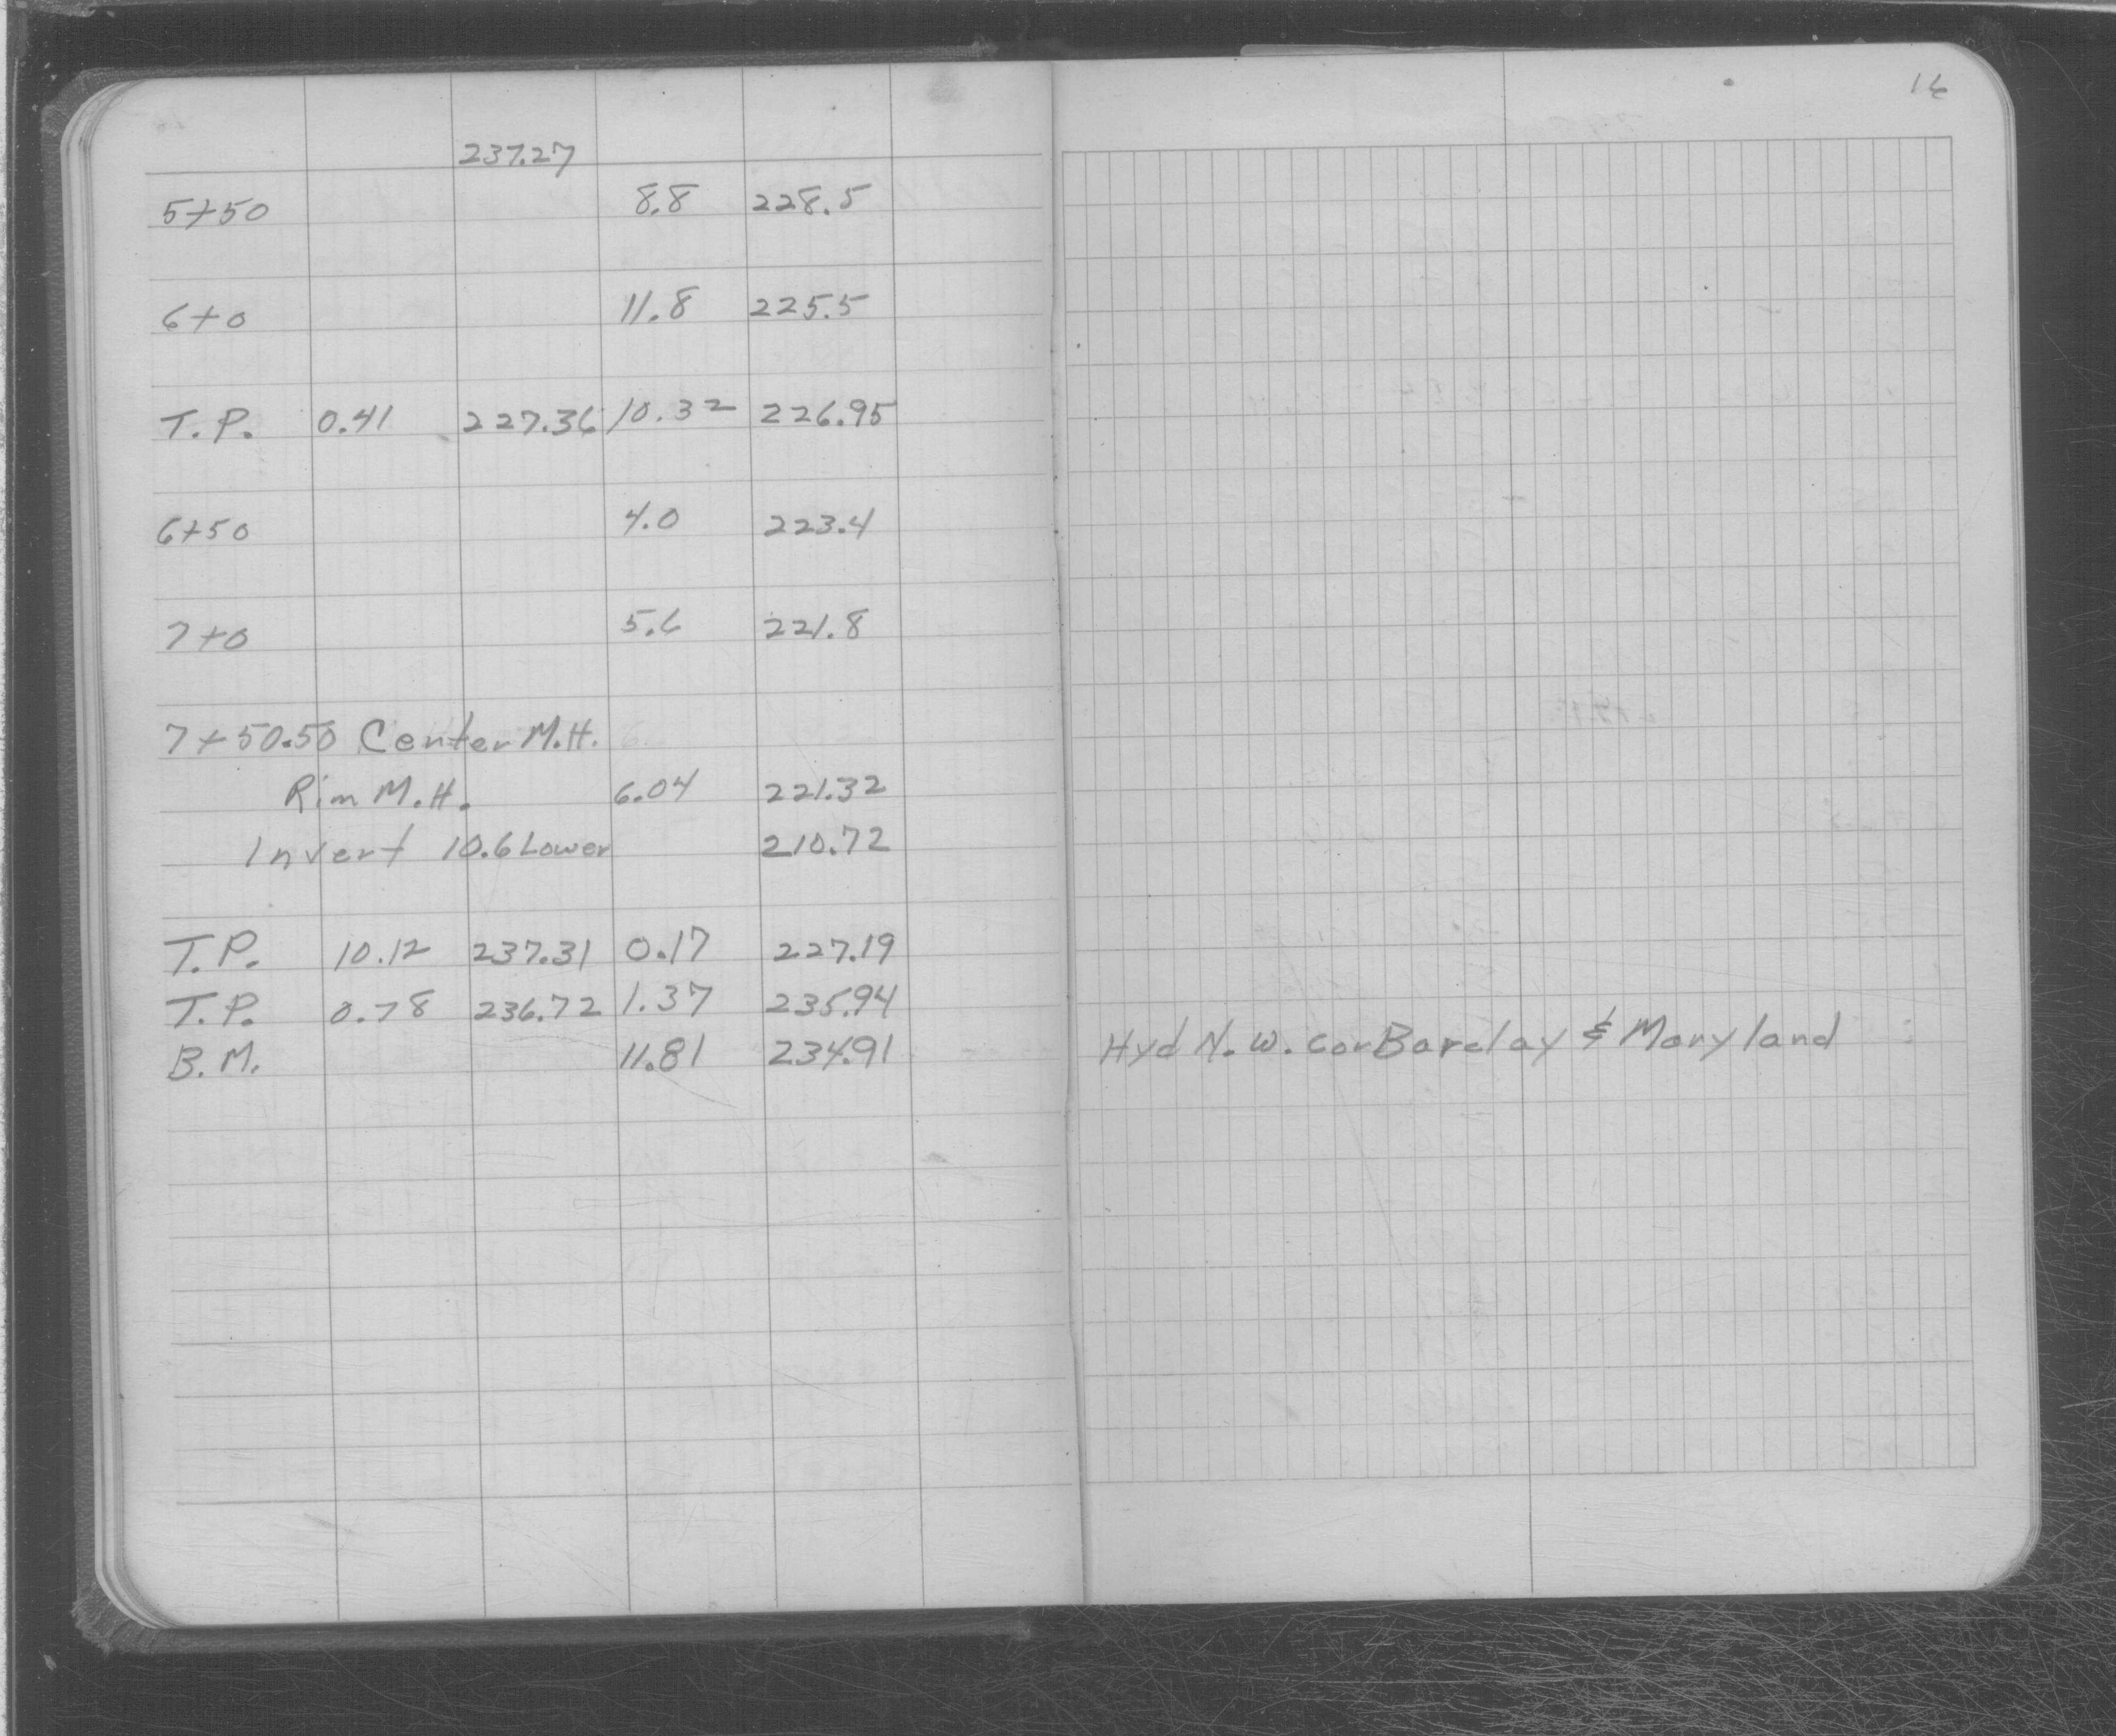 16
237.27
5+50 8.8 228.5
6+0 11.8 225.5
T.P. 0.41 227.36 10.32 226.95
6+50 4.0 223.4
7+0 5.6 221.8
7+50.50 Center M.H.
Rim M.H. 6.04 221.32
Invert 10.6 Lower 210.72
T.P. 10.12 237.31 0.17 227.19
T.P. 0.78 236.72 1.37 235.94
B.M. 11.81 234.91 Hyd N.W. cor Barclay & Maryland